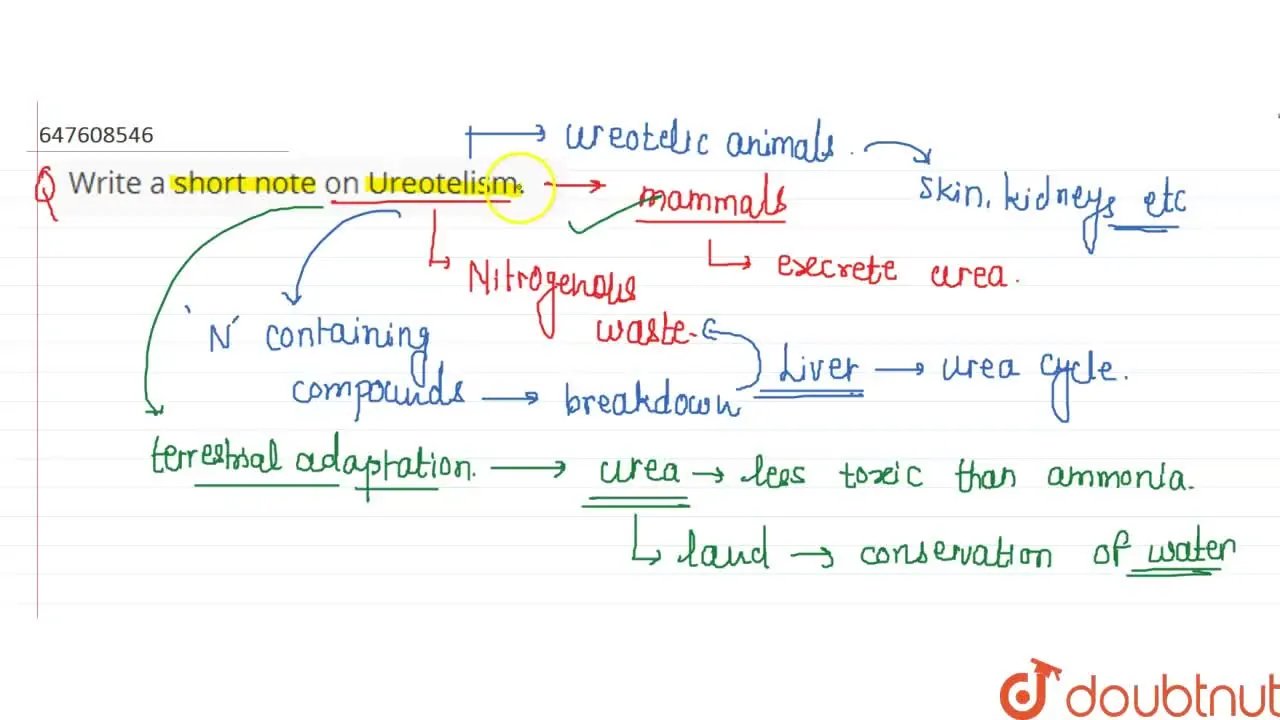 647608546
ureotelic animals.
Q Write a short note on Ureotelism.
mammals
skin, kidneys etc
excrete urea.
Nitrogenous
waste
'N' containing
compounds → breakdown
Liver → urea cycle.
terrestrial adaptation. → urea → less toxic than ammonia.
land → conservation of water
doubtnut